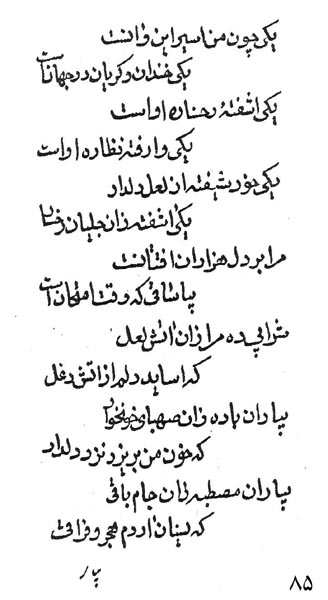 یکی چون من اسیر این و آنست
یکی خندان و گریان در جهانست
یکی اشفتهٔ رخساره او است
یکی وارفته نظاره او است
یکی خود شیفته ان لعل دلدار
یکی اشفته زان
مرا بر دل هزاران افتانست
بیا ساقی که وقت امتحان است
شرابی ده مرا زان اتش لعل
که اساید دلم از اتش دغل
بیار ان باده زان صهبای خونخوار
که خون من بریزد نزد دلدار
بیار ان مصطبه زان جام باقی
که بستان اردم هجر و فراقی
بیار
۸۵